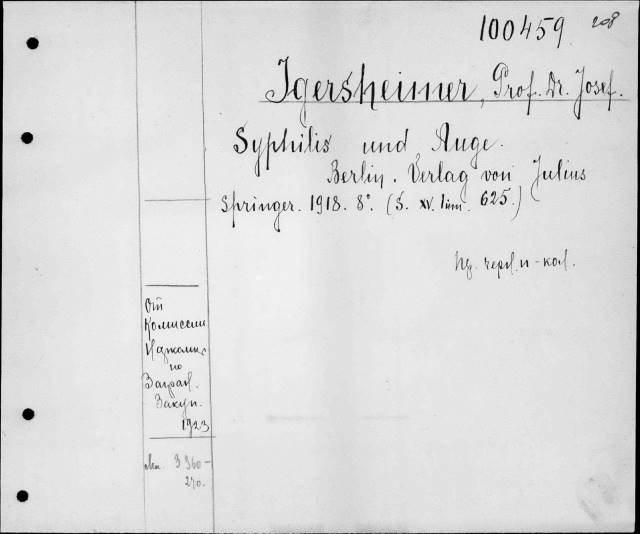 100459 208
Igersheimer, Prof. Dr. Josef.
Syphilis und Auge.
Berlin. Verlag von Julius
Springer. 1918. 8°. (S. XV. 625.)
От
Комиссии
по
Заграв.
Закуп.
1923
3360-
270.